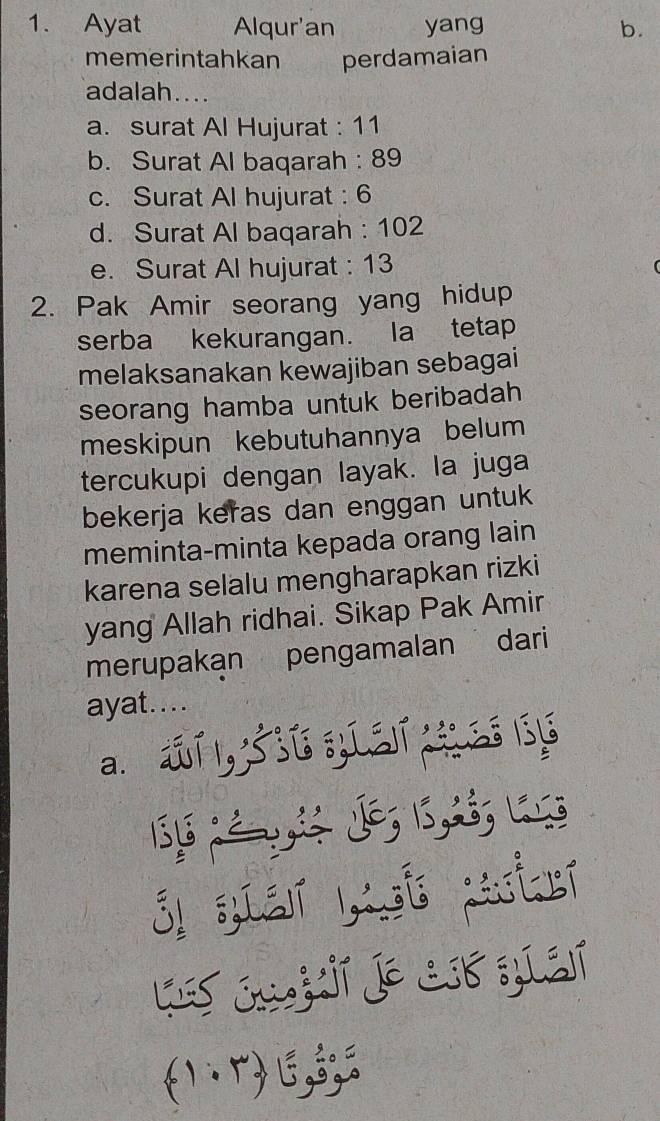 1. Ayat Alqur'an yang
memerintahkan perdamaian
adalah....
a. surat Al Hujurat : 11
b. Surat Al baqarah : 89
c. Surat Al hujurat : 6
d. Surat Al baqarah : 102
e. Surat Al hujurat : 13
2. Pak Amir seorang yang hidup
serba kekurangan. Ia tetap
melaksanakan kewajiban sebagai
seorang hamba untuk beribadah
meskipun kebutuhannya belum
tercukupi dengan layak. Ia juga
bekerja keras dan enggan untuk
meminta-minta kepada orang lain
karena selalu mengharapkan rizki
yang Allah ridhai. Sikap Pak Amir
merupakan pengamalan dari
ayat....
a. فَإِذَا قَضَيۡتُمُ ٱلصَّلَوٰةَ فَٱذۡكُرُواْ ٱللَّهَ
قِيَٰمٗا وَقُعُودٗا وَعَلَىٰ جُنُوبِكُمۡۚ فَإِذَا
ٱطۡمَأۡنَنتُمۡ فَأَقِيمُواْ ٱلصَّلَوٰةَۚ إِنَّ
ٱلصَّلَوٰةَ كَانَتۡ عَلَى ٱلۡمُؤۡمِنِينَ كِتَٰبٗا
مَّوۡقُوتٗا ﴿١٠٣﴾
b.